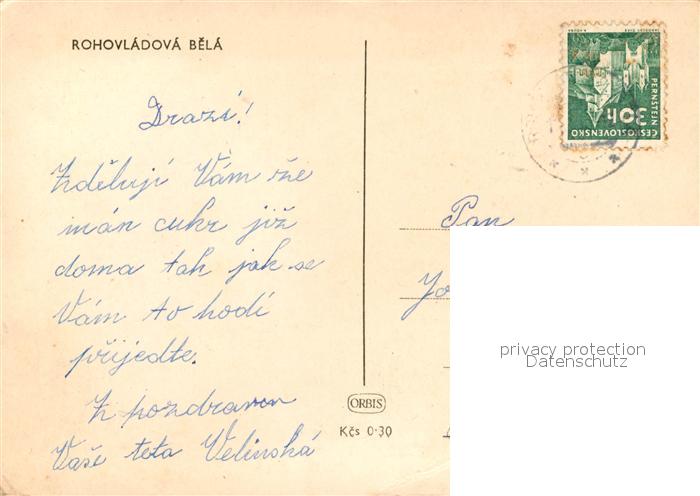 ROHOVLÁDOVÁ BĚLÁ
Drazí!
Zděluji Vám že
mán cukr již
doma tak jak se
Vám to hodí
přijedte.
Z pozdravem
Vaše teta Velinská
ORBIS
Kčs 0·30
ČESKOSLOVENSKO
30h
PERNŠTEJN
Pan
privacy protection
Datenschutz